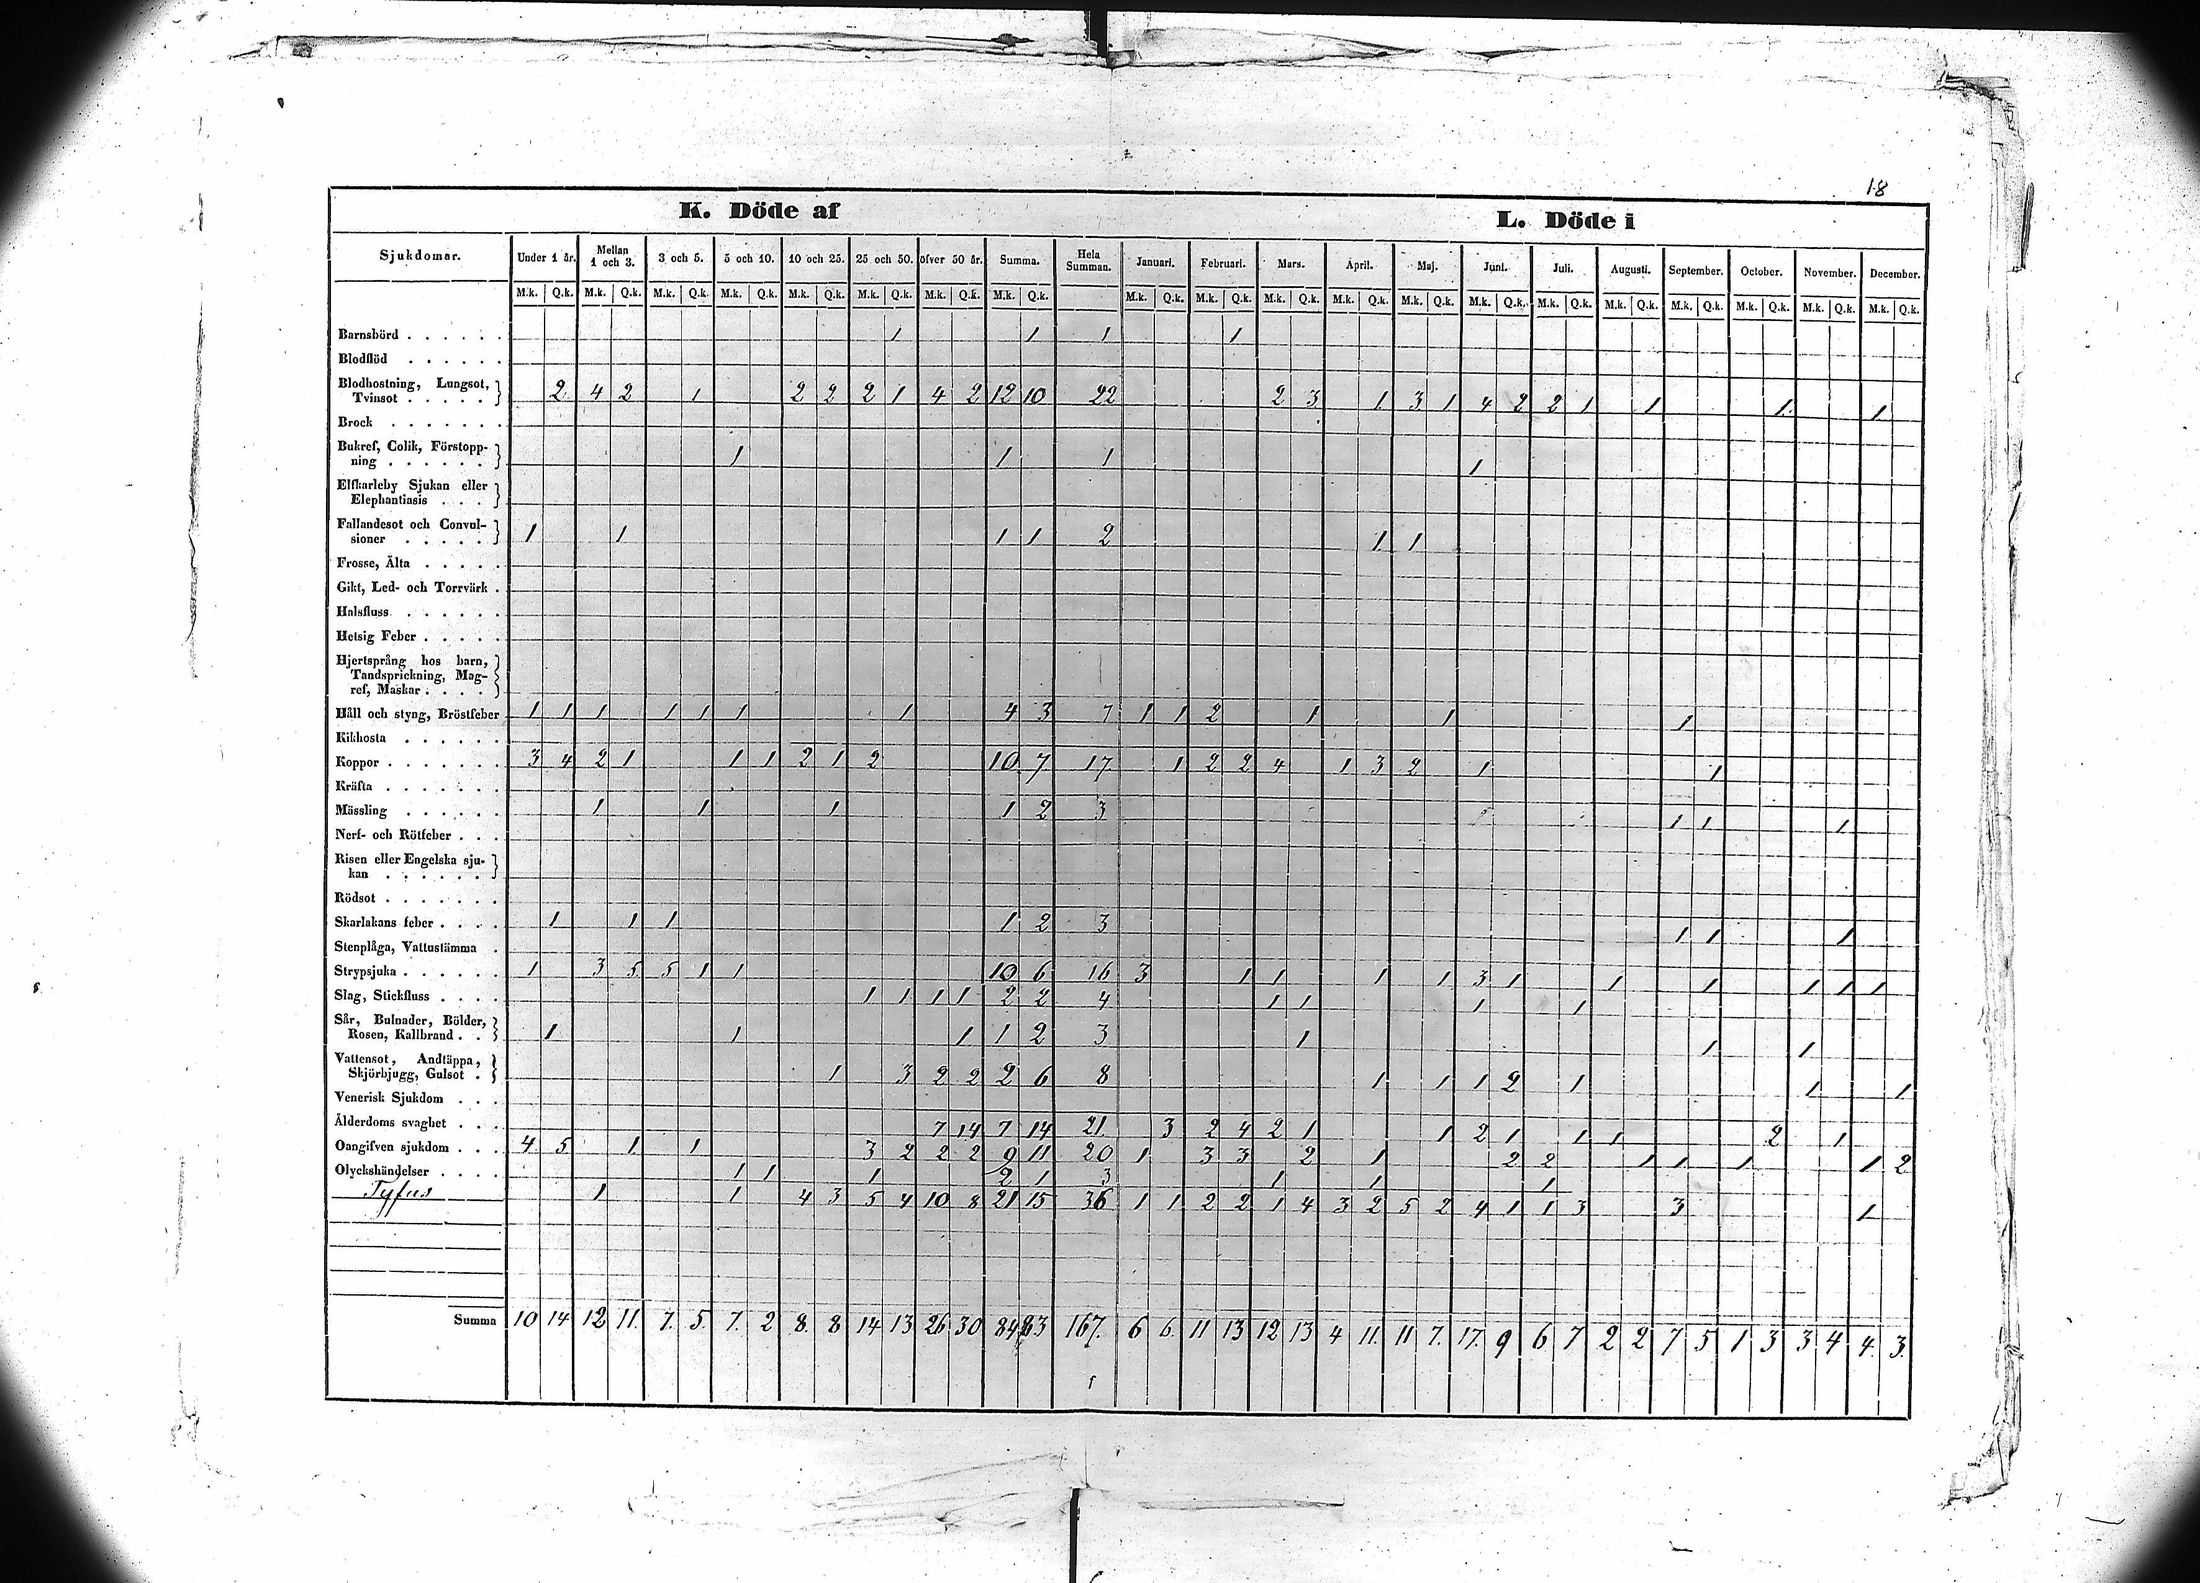 18
K. Döde af L. Döde i
Sjukdomar. Under 1 år. Mellan 1 och 3. 3 och 5. 5 och 10. 10 och 25. 25 och 50. öfver 50 år. Summa. Hela Summan. Januari. Februari. Mars. April. Maj. Juni. Juli. Augusti. September. October. November. December.
M.k. Q.k. M.k. Q.k. M.k. Q.k. M.k. Q.k. M.k. Q.k. M.k. Q.k. M.k. Q.k. M.k. Q.k. M.k. Q.k. M.k. Q.k. M.k. Q.k. M.k. Q.k. M.k. Q.k. M.k. Q.k. M.k. Q.k. M.k. Q.k. M.k. Q.k. M.k. Q.k. M.k. Q.k. M.k. Q.k.
Barnsbörd 1 1 1 1
Blodflöd
Blodhostning, Lungsot,
Tvinsot 2 4 2 1 2 2 2 1 4 2 12 10 22 2 3 1 3 1 4 2 2 1 1 1 1
Brock
Bukref, Colik, Förstopp-
ning 1 1 1 1
Elfkarleby Sjukan eller
Elephantiasis
Fallandesot och Convul-
sioner 1 1 1 1 2 1 1
Frosse, Älta
Gikt, Led- och Torrvärk
Halsfluss
Hetsig Feber
Hjertsprång hos barn,
Tandsprickning, Mag-
ref, Maskar
Håll och styng, Bröstfeber 1 1 1 1 1 1 1 4 3 7 1 1 2 1 1 1
Kikhosta
Koppor 3 4 2 1 1 1 2 1 2 10 7 17 1 2 2 4 1 3 2 1 1
Kräfta
Mässling 1 1 1 1 2 3 1 1 1
Nerf- och Rötfeber
Risen eller Engelska sju-
kan
Rödsot
Skarlakans feber 1 1 1 1 2 3 1 1 1
Stenplåga, Vattustämma
Strypsjuka 1 3 5 5 1 1 10 6 16 3 1 1 1 1 3 1 1 1 1 1 1
Slag, Stickfluss 1 1 1 1 2 2 4 1 1 1 1
Sår, Bulnader, Bölder,
Rosen, Kallbrand 1 1 1 1 2 3 1 1 1
Vattensot, Andtäppa,
Skjörbjugg, Gulsot 1 3 2 2 2 6 8 1 1 1 2 1 1 1
Venerisk Sjukdom
Ålderdoms svaghet 7 14 7 14 21 3 2 4 2 1 1 2 1 1 1 2 1
Oangifven sjukdom 4 5 1 1 3 2 2 2 9 11 20 1 3 3 2 1 2 2 1 1 1 1 2
Olyckshändelser 1 1 1 2 1 3 1 1 1
Tyfus 1 1 4 3 5 4 10 8 21 15 36 1 1 2 2 1 4 3 2 5 2 4 1 1 3 3 1
Summa 10 14 12 11. 7. 5. 7. 2 8. 8 14 13 26 30 84 83 167. 6 6. 11 13 12 13 4 11. 11 7. 17. 9 6 7 2 2 7 5 1 3 3 4 4. 3.